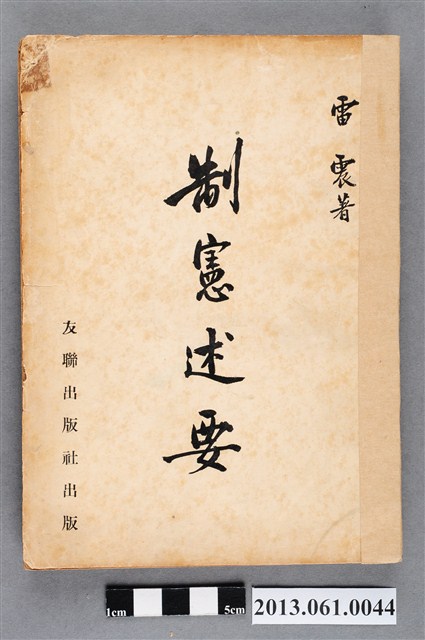 雷震著
制憲述要
友聯出版社出版
1cm 5cm
2013.061.0044